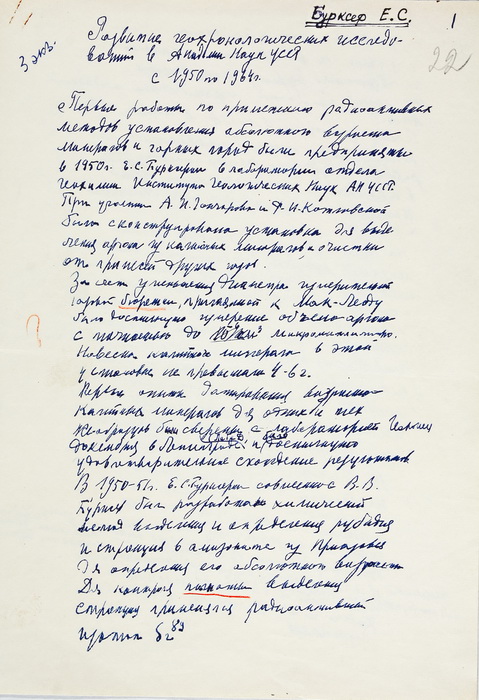 Бурксер Е.С.
1
22
3 экз.
Развитие геохронологических исследо-
ваний в Академии Наук УССР
с 1950 по 1964г.
Первые работы по применению радиоактивных
методов установления абсолютного возраста
минералов и горных пород были предприняты
в 1950г. Е.С.Бурксером в лаборатории отдела
геохимии Института Геологических Наук АН УССР.
При участии А.И.Гончарова и Ф.И.Котловской
была сконструирована установка для выде
ления аргона из калиевых минералов и очистки
от примесей других газов.
За счет уменьшения диаметра измерительной
газовой бюретки, припаянной к Мак-Леоду
было достигнуто измерение объема аргона
с точностью до
Навеска калиевого минерала в этой
установке не превышала 4-6 г.
Первые опыты датирования возраста
калиевых минералов для одних и тех
же образцов были сверены с лабораторией
докембрия в Ленинграде и было достигнуто
удовлетворительное схождение результатов.
В 1950-51г. Е.С.Бурксером совместно с В.В.
был разработан химический
метод выделения и определения рубидия
и стронция в амазоните из Приазовья
для определения его абсолютного возраста
Для контроля полноты выделения
стронция применялся радиоактивный
изотоп Sr 89